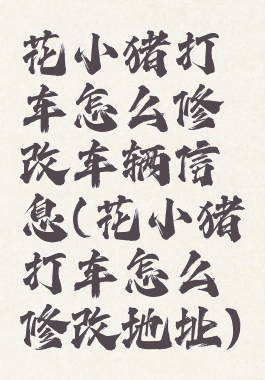 花小猪打
车怎么修
改车辆信
息(花小猪
打车怎么
修改地址)